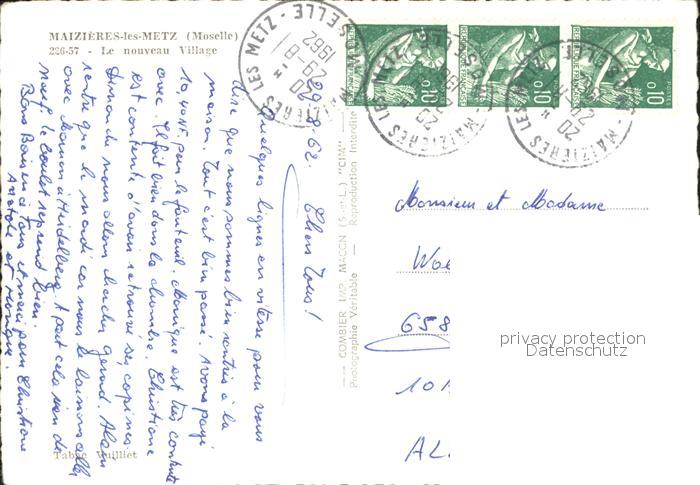 MAIZIÈRES-les-METZ (Moselle)
226-57 - Le nouveau Village
29.8.62.
Chers Tous!
Quelques lignes en vitesse pour vous
dire que nous sommes bien rentrés à la
maison. Tout c'est bien passé. Avons payé
pour le fauteuil. Monique est très contente
avec. Il fait bien dans la chambre. Christiane
est contente d'avoir retrouvé ses copines.
Dimanche nous allons chercher Gérard. Alain
rentre que le mardi car nous le laissons aller
avec Maman à Heidelberg. A part cela rien de
neuf, le boulot reprend bien.
Bons Baisers à Tous et merci pour Christiane
Tabac Vuilliet
COMBIER IMP. MACON (S.-et-L.) "CIM"
Photographie Véritable - Reproduction Interdite
MAIZIÈRES LES METZ - MOSELLE
20 H
29-8
1962
REPUBLIQUE FRANÇAISE
0,10
POSTES
0,10
0,10
Monsieur et Madame
658
101
AL.
privacy protection
Datenschutz